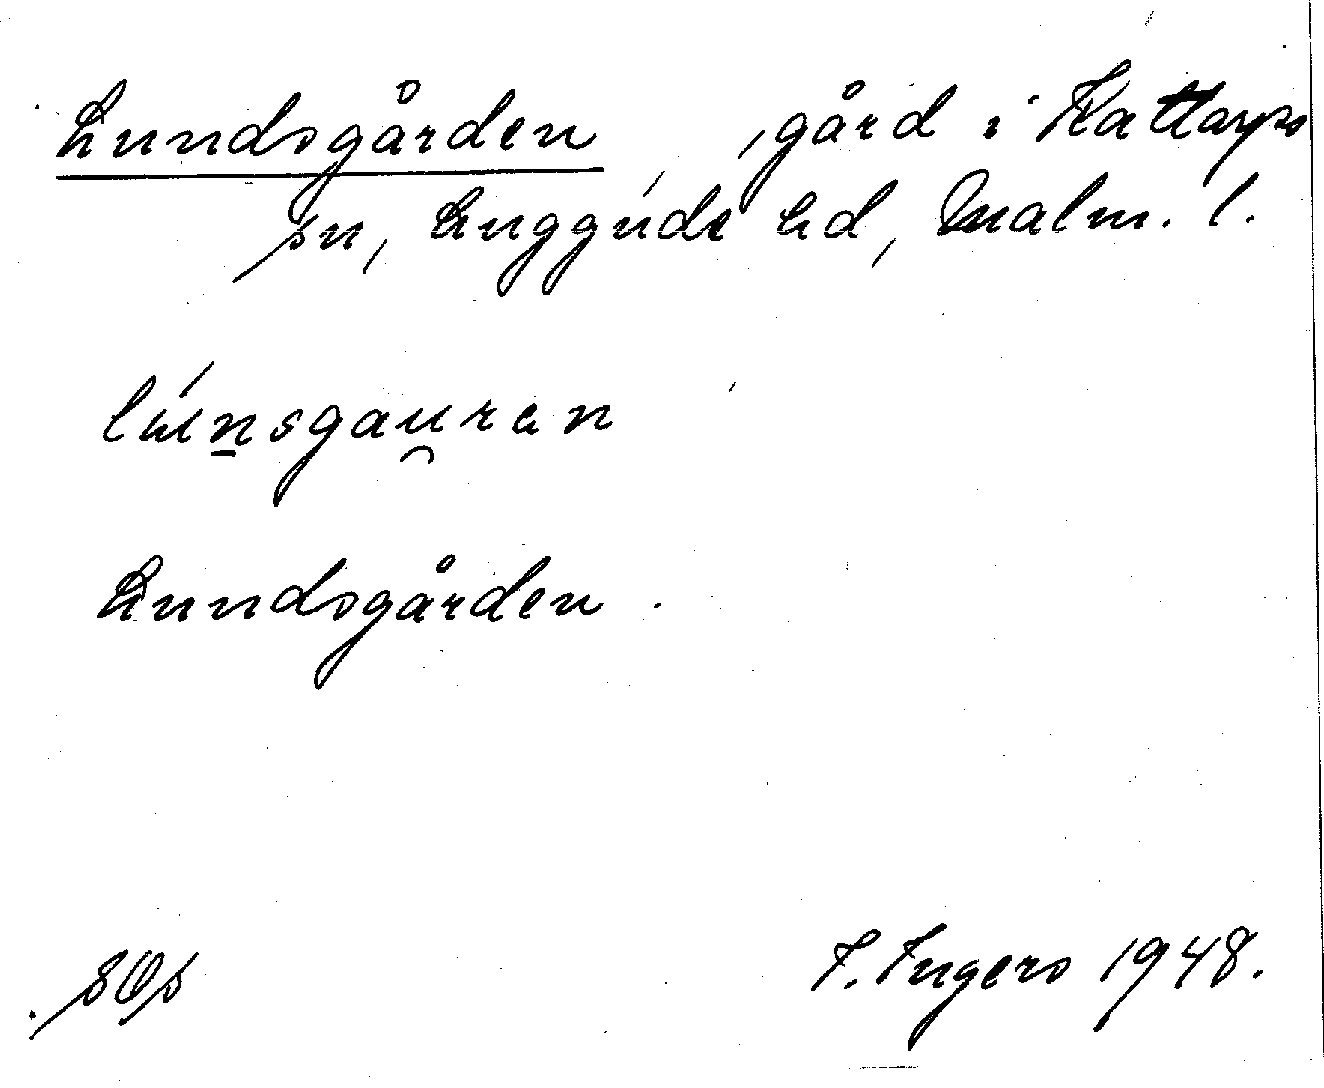 Lundsgården, gård i Kattarps
sn, Luggude hd, Malm. l.
lunsgauran
Lundsgården.
I. Ingers 1948.